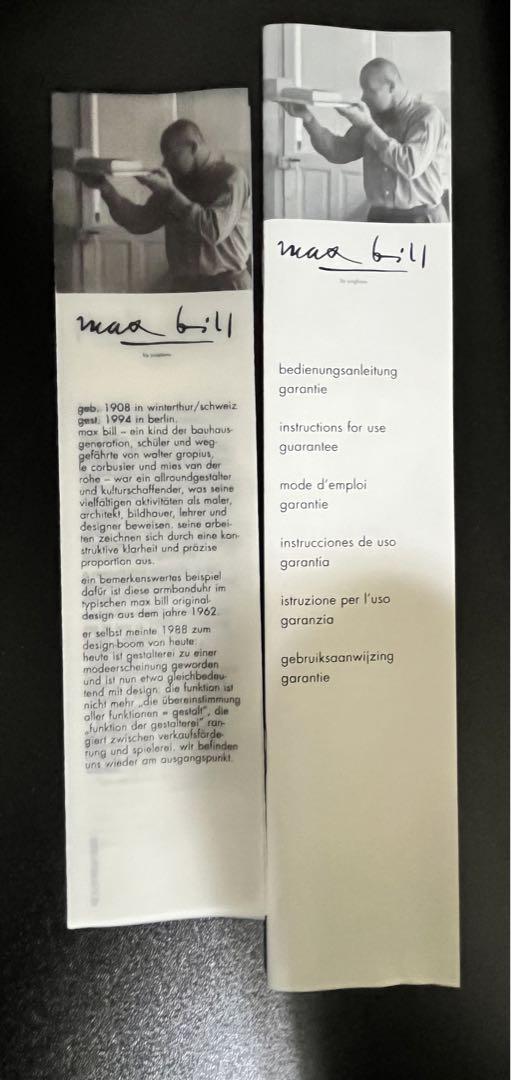 max bill
für junghans
geb. 1908 in winterthur/schweiz
gest. 1994 in berlin.
max bill – ein kind der bauhaus-
generation, schüler und weg-
gefährte von walter gropius,
le corbusier und mies van der
rohe – war ein allroundgestalter
und kulturschaffender, was seine
vielfältigen aktivitäten als maler,
architekt, bildhauer, lehrer und
designer beweisen. seine arbei-
ten zeichnen sich durch eine kon-
struktive klarheit und präzise
proportion aus.
ein bemerkenswertes beispiel
dafür ist diese armbanduhr im
typischen max bill original-
design aus dem jahre 1962.
er selbst meinte 1988 zum
design-boom von heute:
heute ist gestalterei zu einer
modeerscheinung geworden
und ist nun etwa gleichbedeu-
tend mit design. die funktion ist
nicht mehr „die übereinstimmung
aller funktionen = gestalt", die
„funktion der gestalterei" ran-
giert zwischen verkaufsförde-
rung und spielerei. wir befinden
uns wieder am ausgangspunkt.
max bill
für junghans
bedienungsanleitung
garantie
instructions for use
guarantee
mode d'emploi
garantie
instrucciones de uso
garantía
istruzione per l'uso
garanzia
gebruiksaanwijzing
garantie